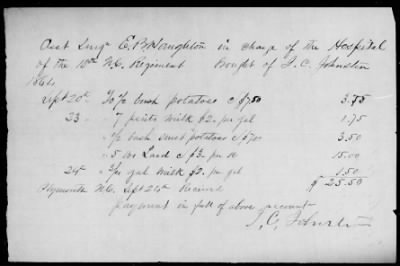 Asst Surg E. B. Haughton in charge of the Hospital
of the 10th N.C. Regiment Bought of J. C. Johnston
1864
Sept 20th To ½ bush potatoes @ $7.50 3.75
23 " 7 pints milk $2. per gal 1.75
" ½ bush sweet potatoes @ $7.00 3.50
" 5 lbs Lard @ $3. per lb 15.00
24th " 3/4 gal milk $2. per gal 1.50
$ 25.50
Plymouth N.C. Sept 24th Received
payment in full of above account
J. C. Johnston